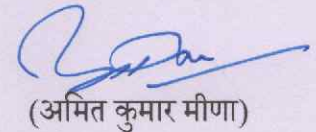 (अमित कुमार मीणा)